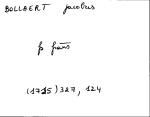 BOLLAERT jacobus
p
(1715) 327, 124